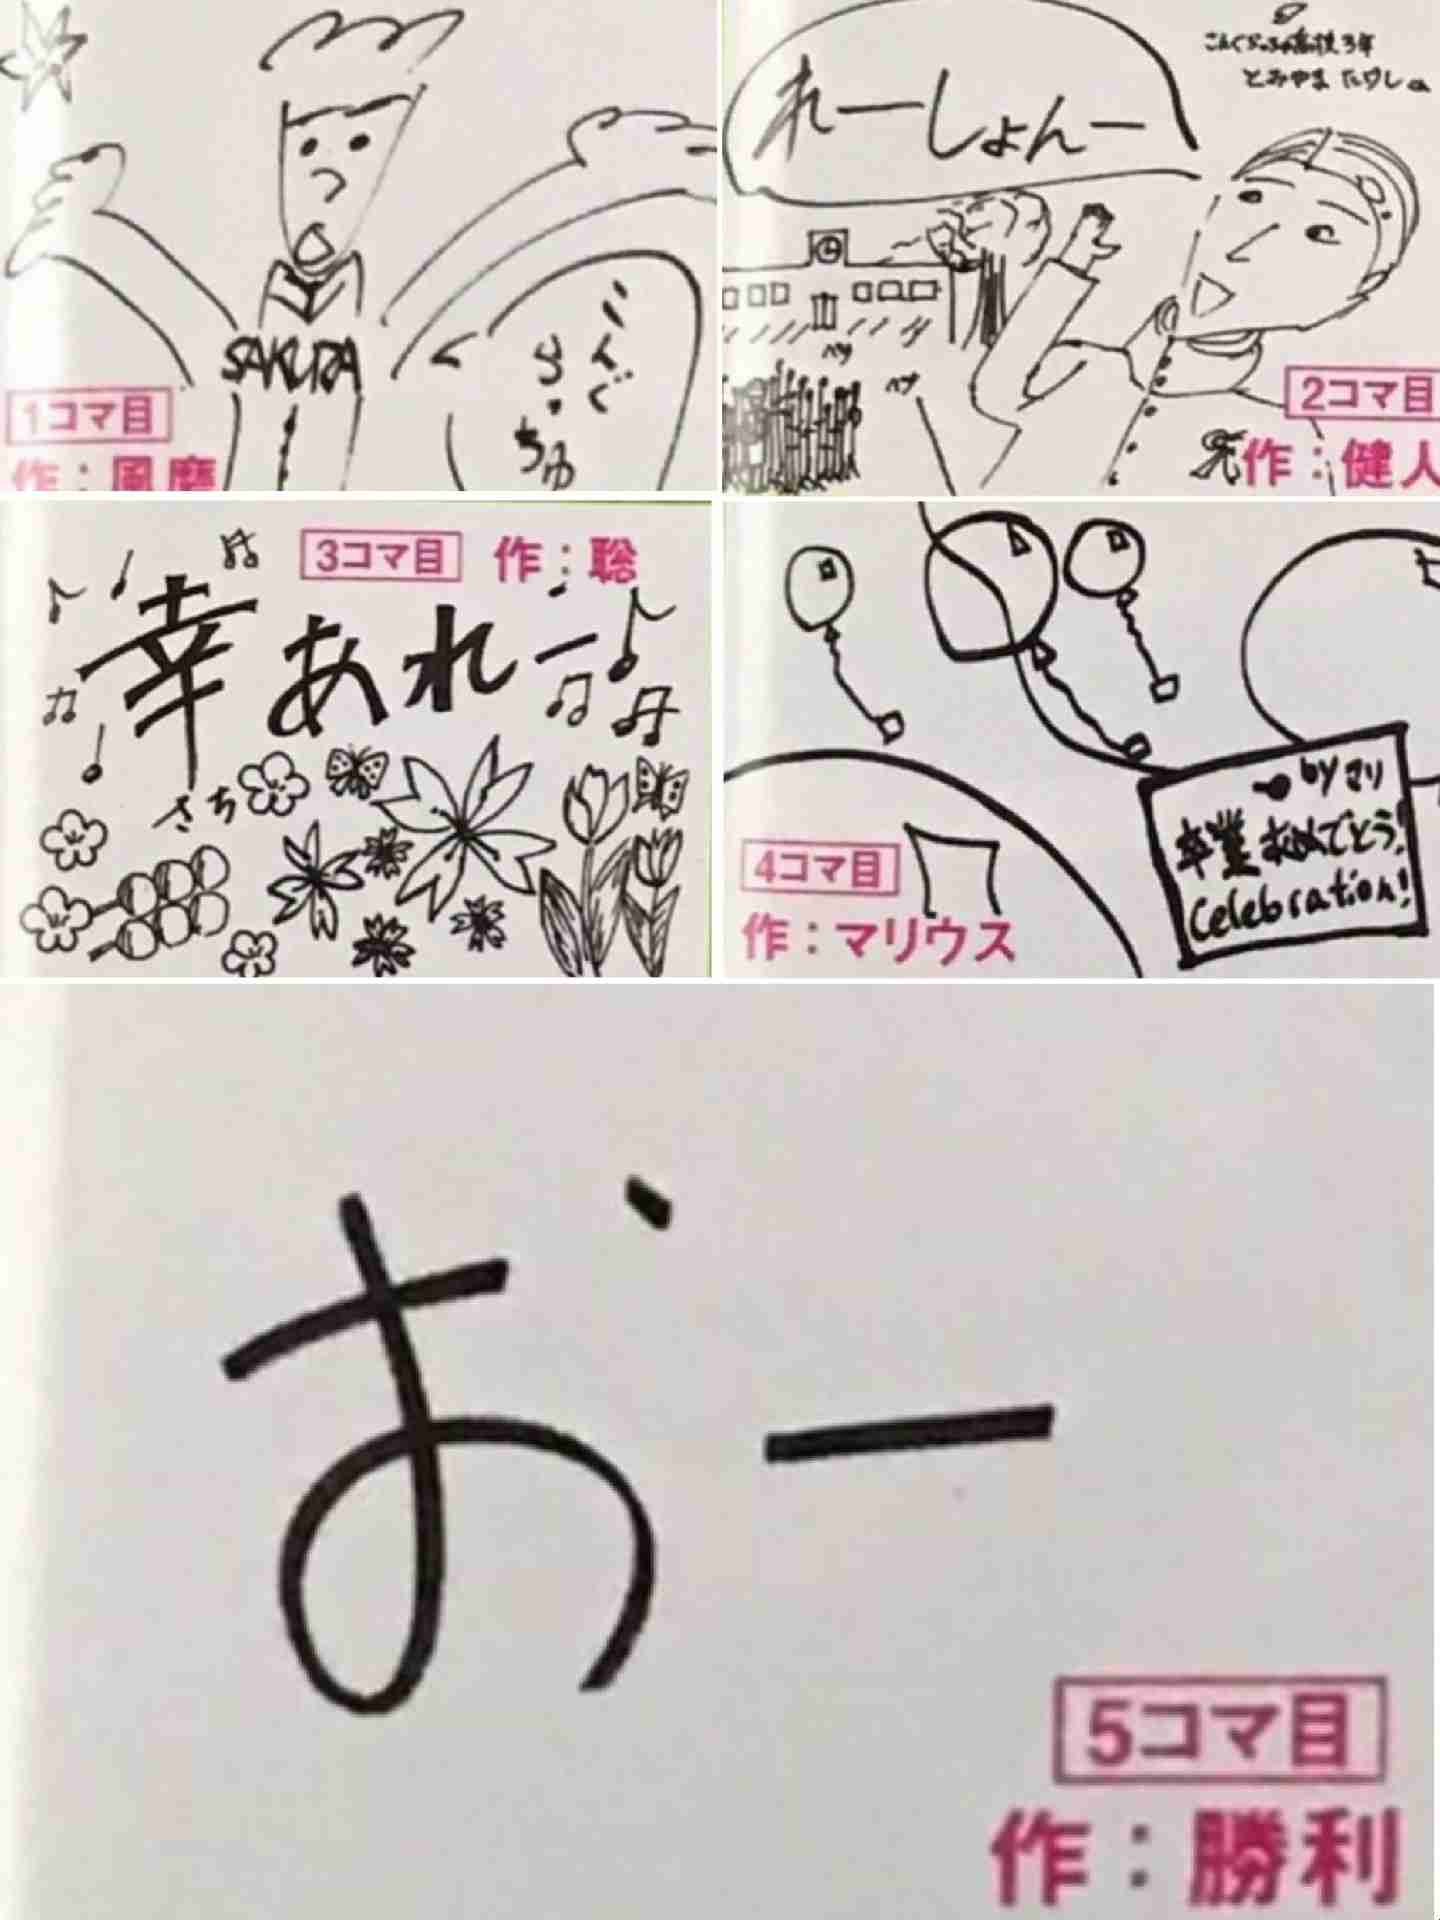 SAKURA
こんぐ
らっちゅ
1コマ目
作:風磨
れーしょんー
こんぐらっちゅ高校3年
とみやま たけし
ペタ
ペナ
2コマ目
作:健人
3コマ目 作:聡
幸あれー
さち
by マリ
卒業おめでとう!
Celebration!
4コマ目
作:マリウス
おー
5コマ目
作:勝利